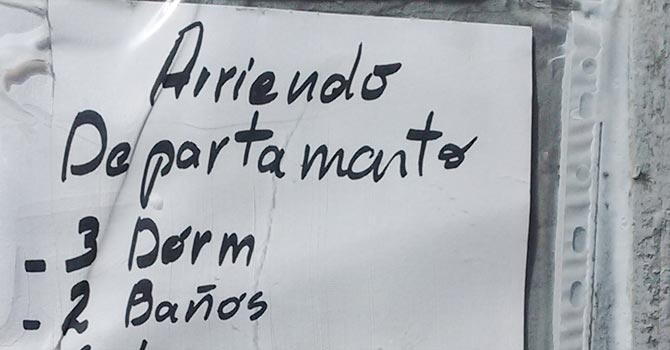 Arriendo
Departamento
- 3 Dorm
- 2 Baños